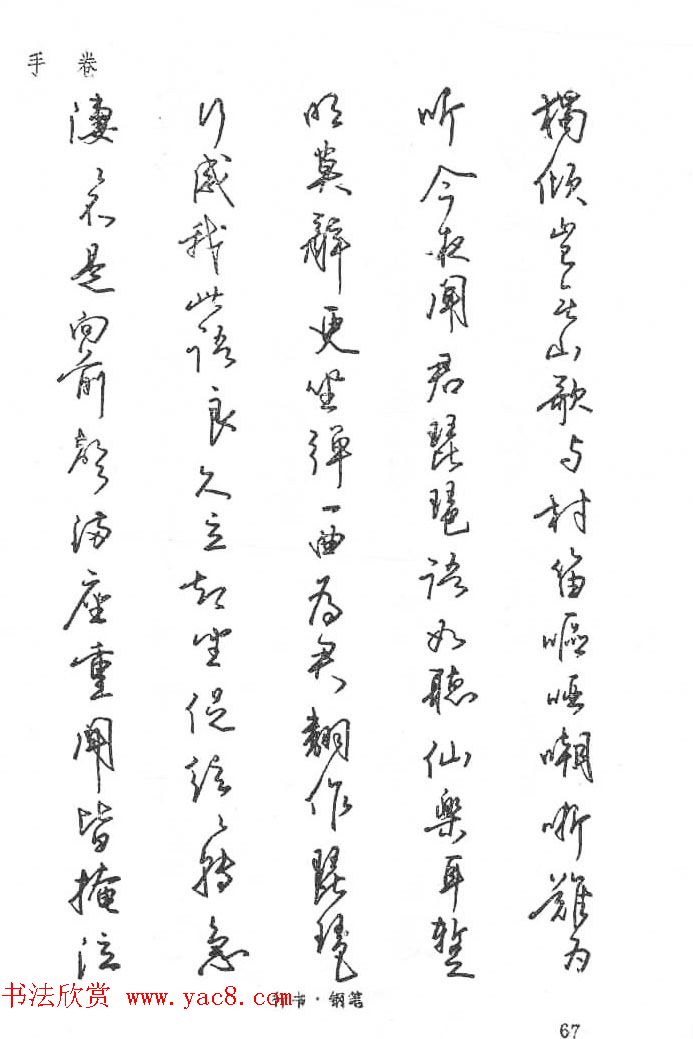 手卷
獨傾豈無山歌与村笛嘔啞嘲哳難为
听今夜闻君琵琶語如聽仙樂耳暫
明莫辭更坐彈一曲为君翻作琵琶
行感我此語良久立却坐促弦弦轉急
淒淒不是向前聲满座重闻皆掩泣
书法欣赏 www.yac8.com
行书·钢笔
67